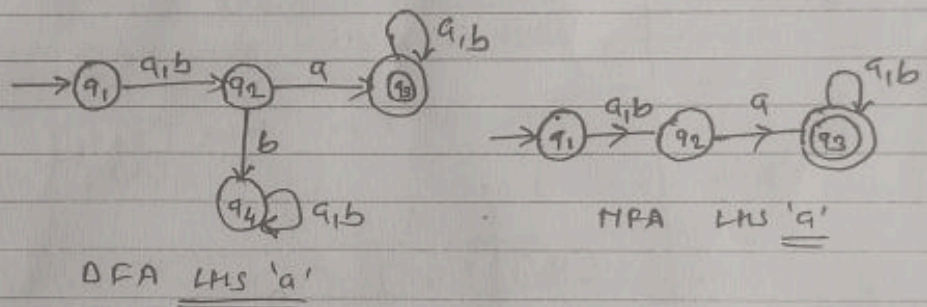 a,b
q1 a,b q2 a q3
b
q4 a,b
DFA LHS 'a'
a,b
q1 a,b q2 a q3
NFA LHS 'a'